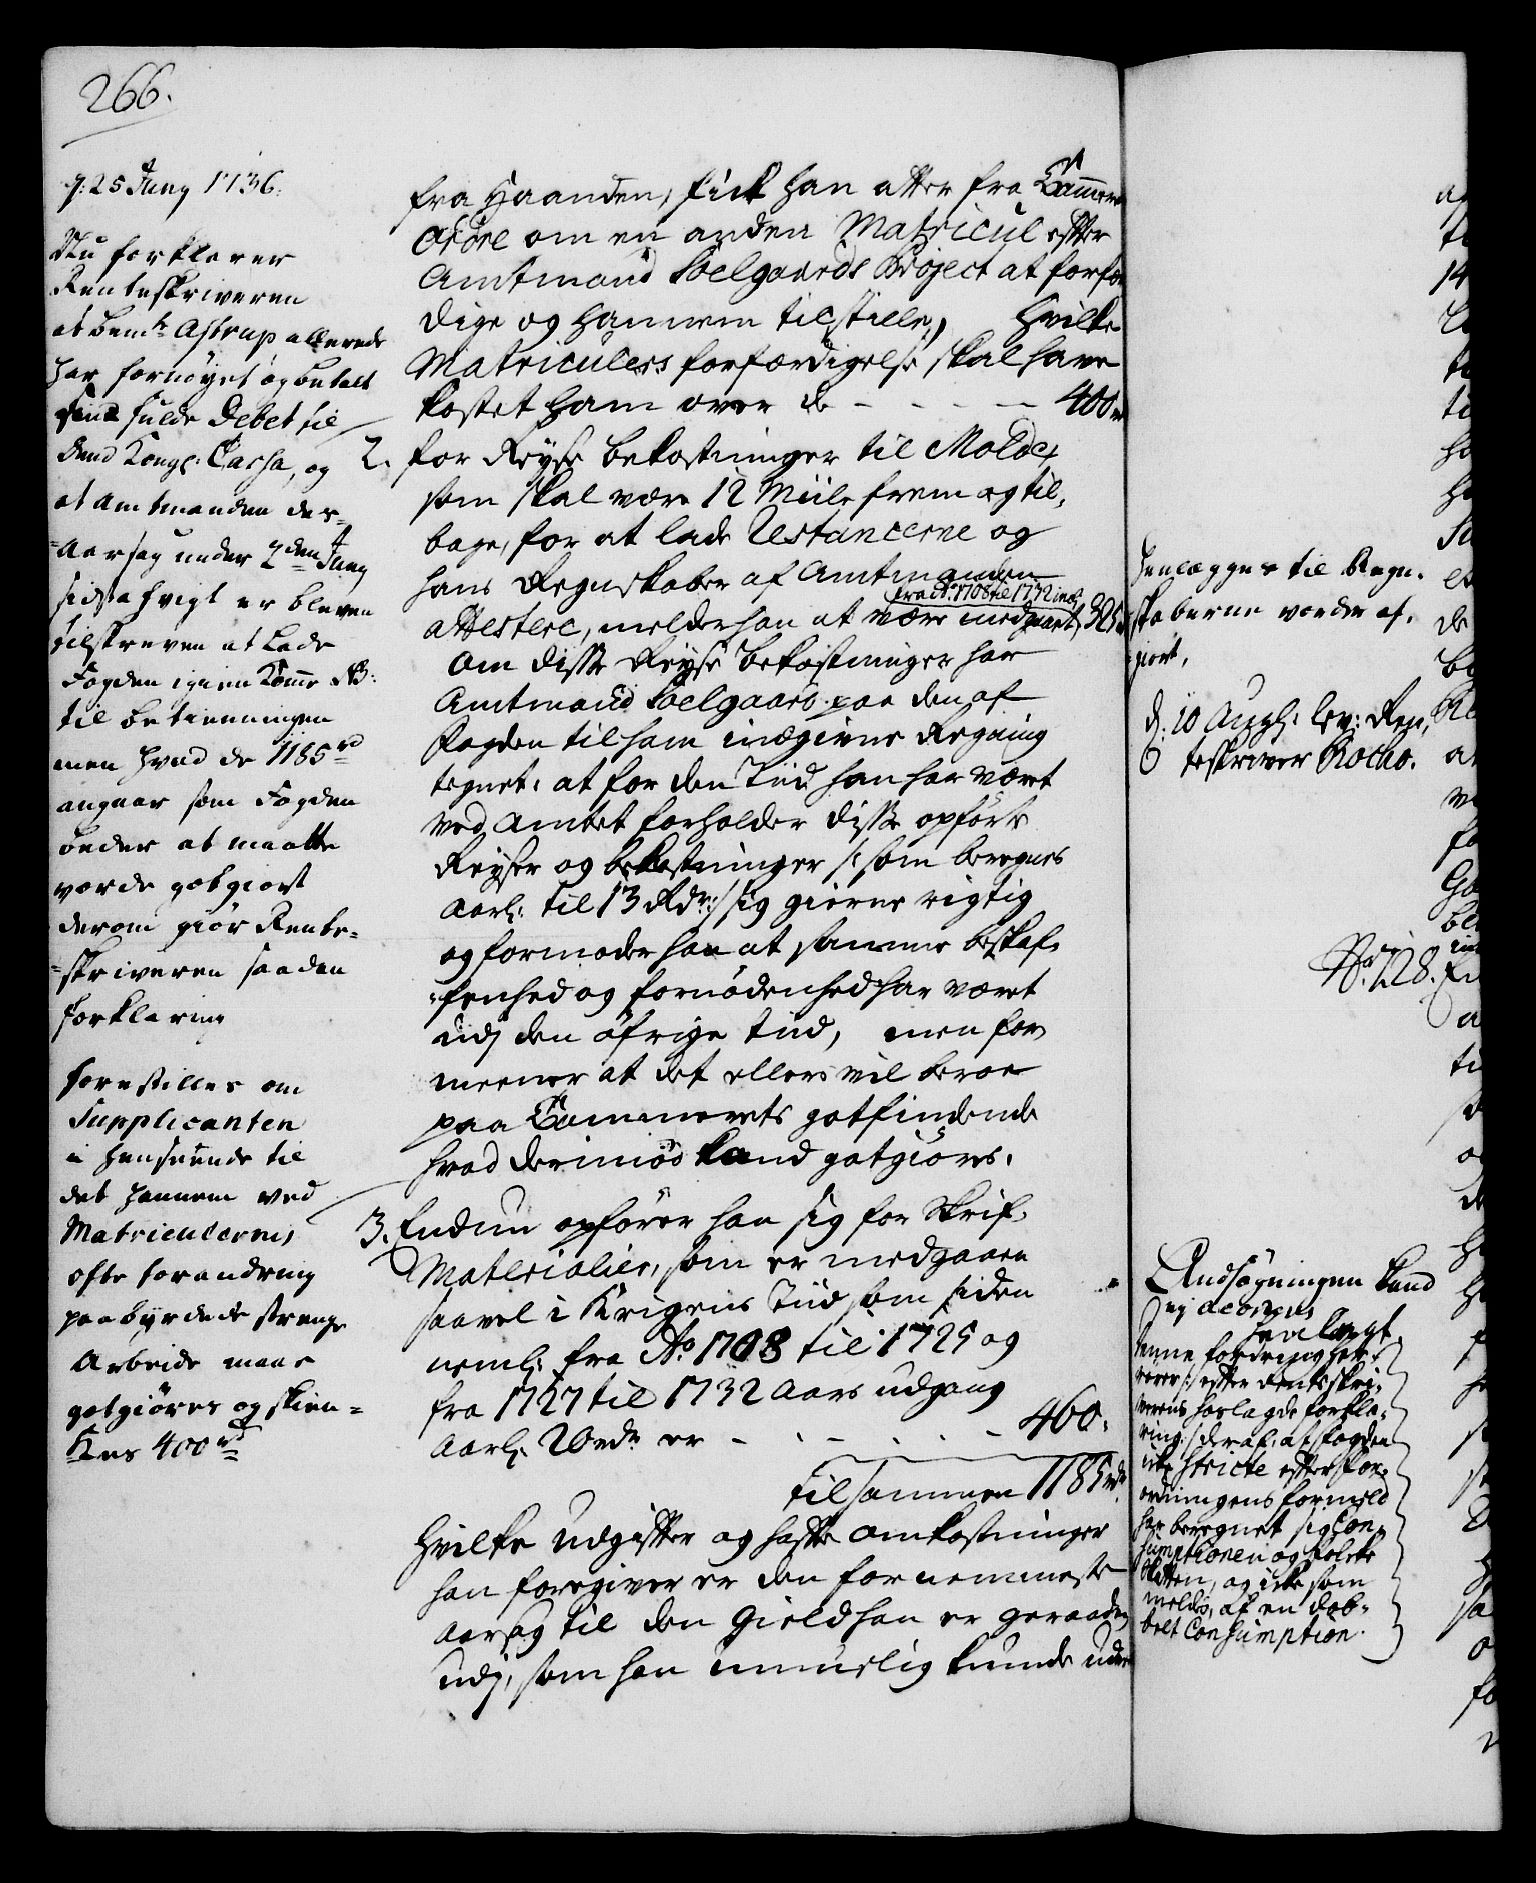 266.
d: 25 Juny 1736.
Nu forklarer
Renteskriveren
at bemte Astrup allerede
har fornöyet og betalt
sin fulde Debet til
dend Kongl: Cassa, og
at Amtmanden der-
aarsag under 2den Juny
sidsthvigt er bleven
tilskreven at lade
Fogden igien komme
til betienningen
men hvad de 1185 rd
angaar som Fogden
beder at maatte
vorde godtgiort
derom giör Rente=
=skriveren saadan
forklaring
forestilles om
Supplicanten
i henseende til
det hannem ved
Matriculernes
ofte forandring
paabyrdede strenge
Arbeide maae
godtgiöres og skien=
kes 400 rd
fra Haanden, fick han atter fra Cammeret
Ordre om en anden Matricul efter
Amtmand Soelgaards Project at forfær
dige og hannem tilstille, Hvilke
Matriculers forfærdigelse skal have
kostet ham over de - - - - 400 rd
2. for Reyse bekostninger til Molde,
som skal være 12 Miile frem og til,
bage, for at lade Restancerne og
hans Regnskaber af Amtmanden
fra Ao 1708 til 1732 incl.
attestere, melder han at være medgaaet, 325
Om disse Reyse bekostninger har
Amtmand Soelgaard paa den af
Fogden til ham indgivne Regning
tegnet: at for den Tiid han har været
ved Amtet forholder disse opförte
Reyser og bekostninger /: som beregnes
Aarl: til 13 Rdr:/ sig gierne rigtig
og formoder han at samme beskaf-
=fenhed og fornödenhed har været
udj den öfrige tiid, men for
meener at det ellers vil beroe
paa Cammerets gotfindende
hvad derimod kand gotgiöres.
3. Endnu opförer han sig for Skrif-
Materialier, som er medgaaen
saavel i Krigens Tiid som siden
neml: fra Ao 1708 til 1725 og
fra 1727 til 1732 Aars udgang
Aarl: 20 rdr er - - - - - 460.
tilsammen 1185 rdr
Hvilke Udgifter og hafte omkostninger
han foregiver er den fornemmeste
aarsag til den Gield han er geraaden
udj, som han umuelig kunde
henlægges til Regn-
skaberne vorder af-
giort.
d: 10 Augs: lev: Ren-
teskriver
No. 728.
Andsögningen kand
ej accorderes
henlagt
denne fordring her-
efter Rentskri-
verens forklar-
ring :/ deraf, at fogden
icke stricte efter for-
ordningens formeld
har beregnet sig Con-
sumptionen og folcke
skatten, og icke som
meldes, af en dob-
belt Consumption.